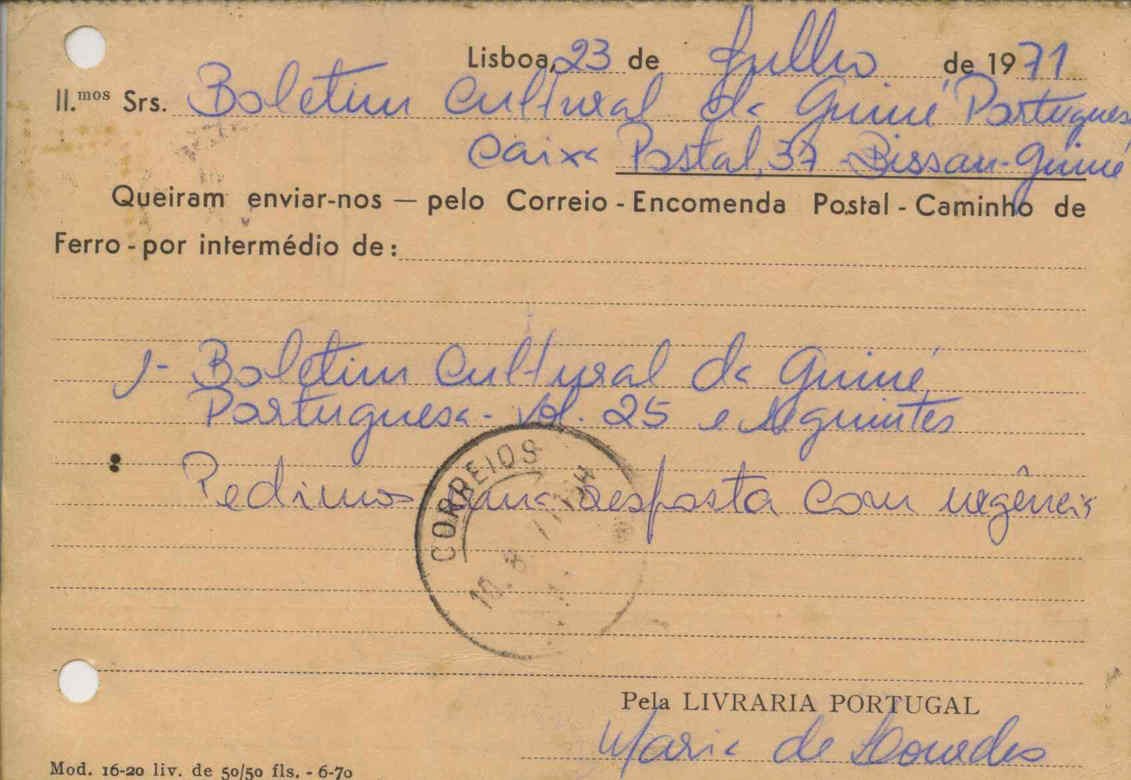 Lisboa, 23 de Julho de 1971
Il.mos Srs. Boletim Cultural da Guiné Portuguesa
Caixa Postal, 37 - Bissau - Guiné
Queiram enviar-nos — pelo Correio - Encomenda Postal - Caminho de
Ferro - por intermédio de:
1- Boletim Cultural da Guiné
Portuguesa - Vol. 25 e seguintes
Pedimos uma resposta com urgência
CORREIOS
Pela LIVRARIA PORTUGAL
Maria de Lourdes
Mod. 16-20 liv. de 50/50 fls. - 6-70